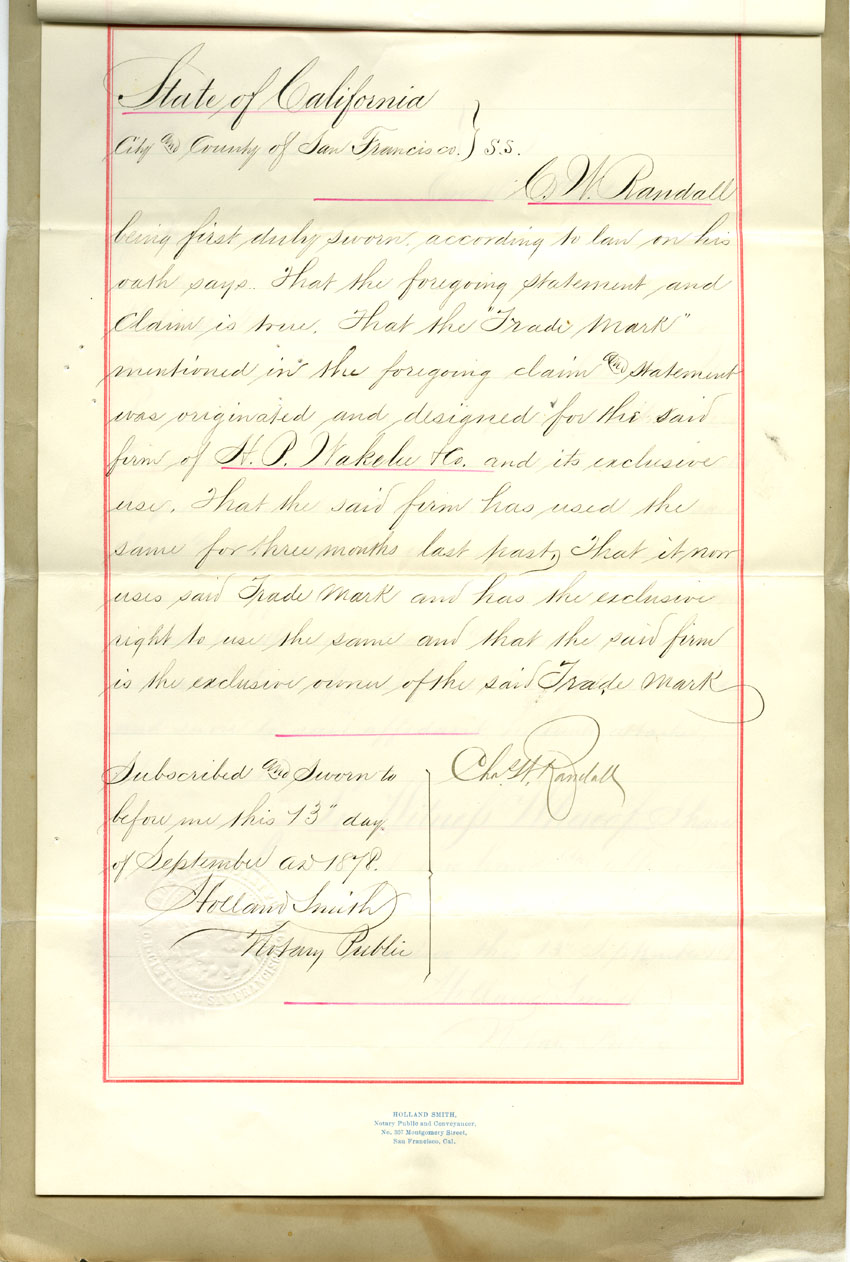 State of California
City and County of San Francisco. } S.S.
C. W. Randall
being first duly sworn, according to law on his
oath says. That the foregoing statement and
Claim is true. That the "Trade Mark"
mentioned in the foregoing claim and statement
was originated and designed for the said
firm of H. P. Wakelee & Co. and its exclusive
use. That the said firm has used the
same for three months last past, That it now
uses said Trade Mark and has the exclusive
right to use the same and that the said firm
is the exclusive owner of the said Trade Mark
Subscribed and Sworn to
before me this 13" day
of September AD 1878.
Holland Smith
Notary Public
Chas. W. Randall
SAN FRANCISCO
HOLLAND SMITH,
Notary Public and Conveyancer,
No. 307 Montgomery Street,
San Francisco, Cal.